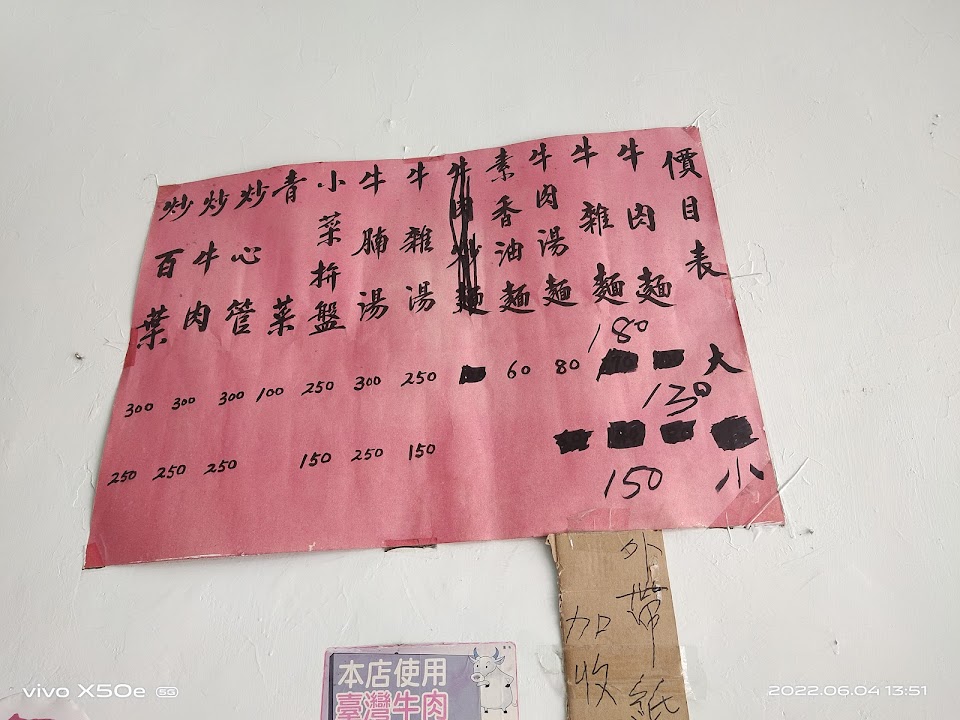 價目表
牛肉麵
牛雜麵
牛肉湯麵
素香油麵
牛肉炒麵
牛雜湯
牛腩湯
小菜拚盤
青菜
炒心管
炒牛肉
炒百葉
180
大 80 60 250 300 250 100 300 300 300
130
小 150 150 250 150 250 250 250
外帶紙
加收
本店使用
臺灣牛肉
vivo X50e 5G
2022.06.04 13:51